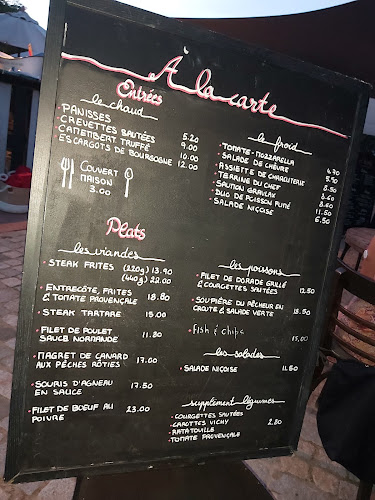 A la carte
Entrées
le chaud
• PANISSES 5.20
• CREVETTES SAUTÉES 9.00
• CAMEMBERT TRUFFÉ 10.00
• ESCARGOTS DE BOURGOGNE 12.00
COUVERT
MAISON
3.00
le froid
• TOMATE-MOZZARELLA 6.90
• SALADE DE CHÈVRE
• ASSIETTE DE CHARCUTERIE
• TERRINE DU CHEF
• SAUMON GRAVLAX
• DUO DE POISSON FUMÉ 11.50
• SALADE NIÇOISE 6.50
Plats
les viandes
• STEAK FRITES (220g) 13.90
(440g) 22.00
• ENTRECÔTE, FRITES
& TOMATE PROVENÇALE 18.80
• STEAK TARTARE 15.00
• FILET DE POULET
SAUCE NORMANDE 11.80
• MAGRET DE CANARD
AUX PÊCHES RÔTIES 17.00
• SOURIS D'AGNEAU
EN SAUCE 17.50
• FILET DE BOEUF AU
POIVRE 23.00
les poissons
• FILET DE DORADE GRILLÉ
& COURGETTES SAUTÉES 12.50
• SOUPIÈRE DU PÊCHEUR EN
CROUTE & SALADE VERTE 18.50
• Fish & chips 15,00
les salades
• SALADE NIÇOISE 11.50
supplément légumes
• COURGETTES SAUTÉES
• CAROTTES VICHY 2.80
• RATATOUILLE
• TOMATE PROVENÇALE